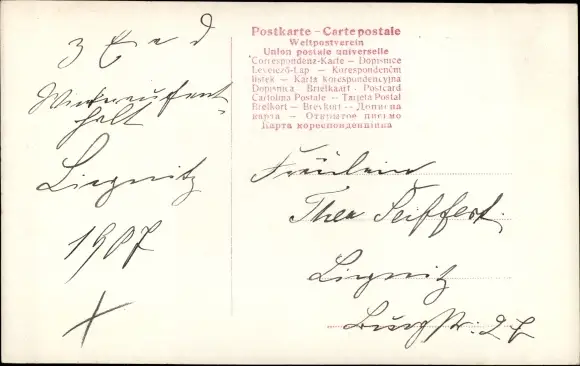 3 E e d
Winteraufent-
halt
Liegnitz
1907
X
Postkarte – Carte postale
Weltpostverein
Union postale universelle
Correspondenz-Karte – Dopisnice
Levelező-Lap – Korespondenčni
listek – Karta korespondencyjna
Dopisnica – Briefkaart – Postcard
Cartolina Postale – Tarjeta Postal
Brefkort – Brevkort – Дописна
карта – Открытое письмо
Карта кореспонденцiйна
Fräulein
Thea Seiffert.
Liegnitz
Burgstr: 27